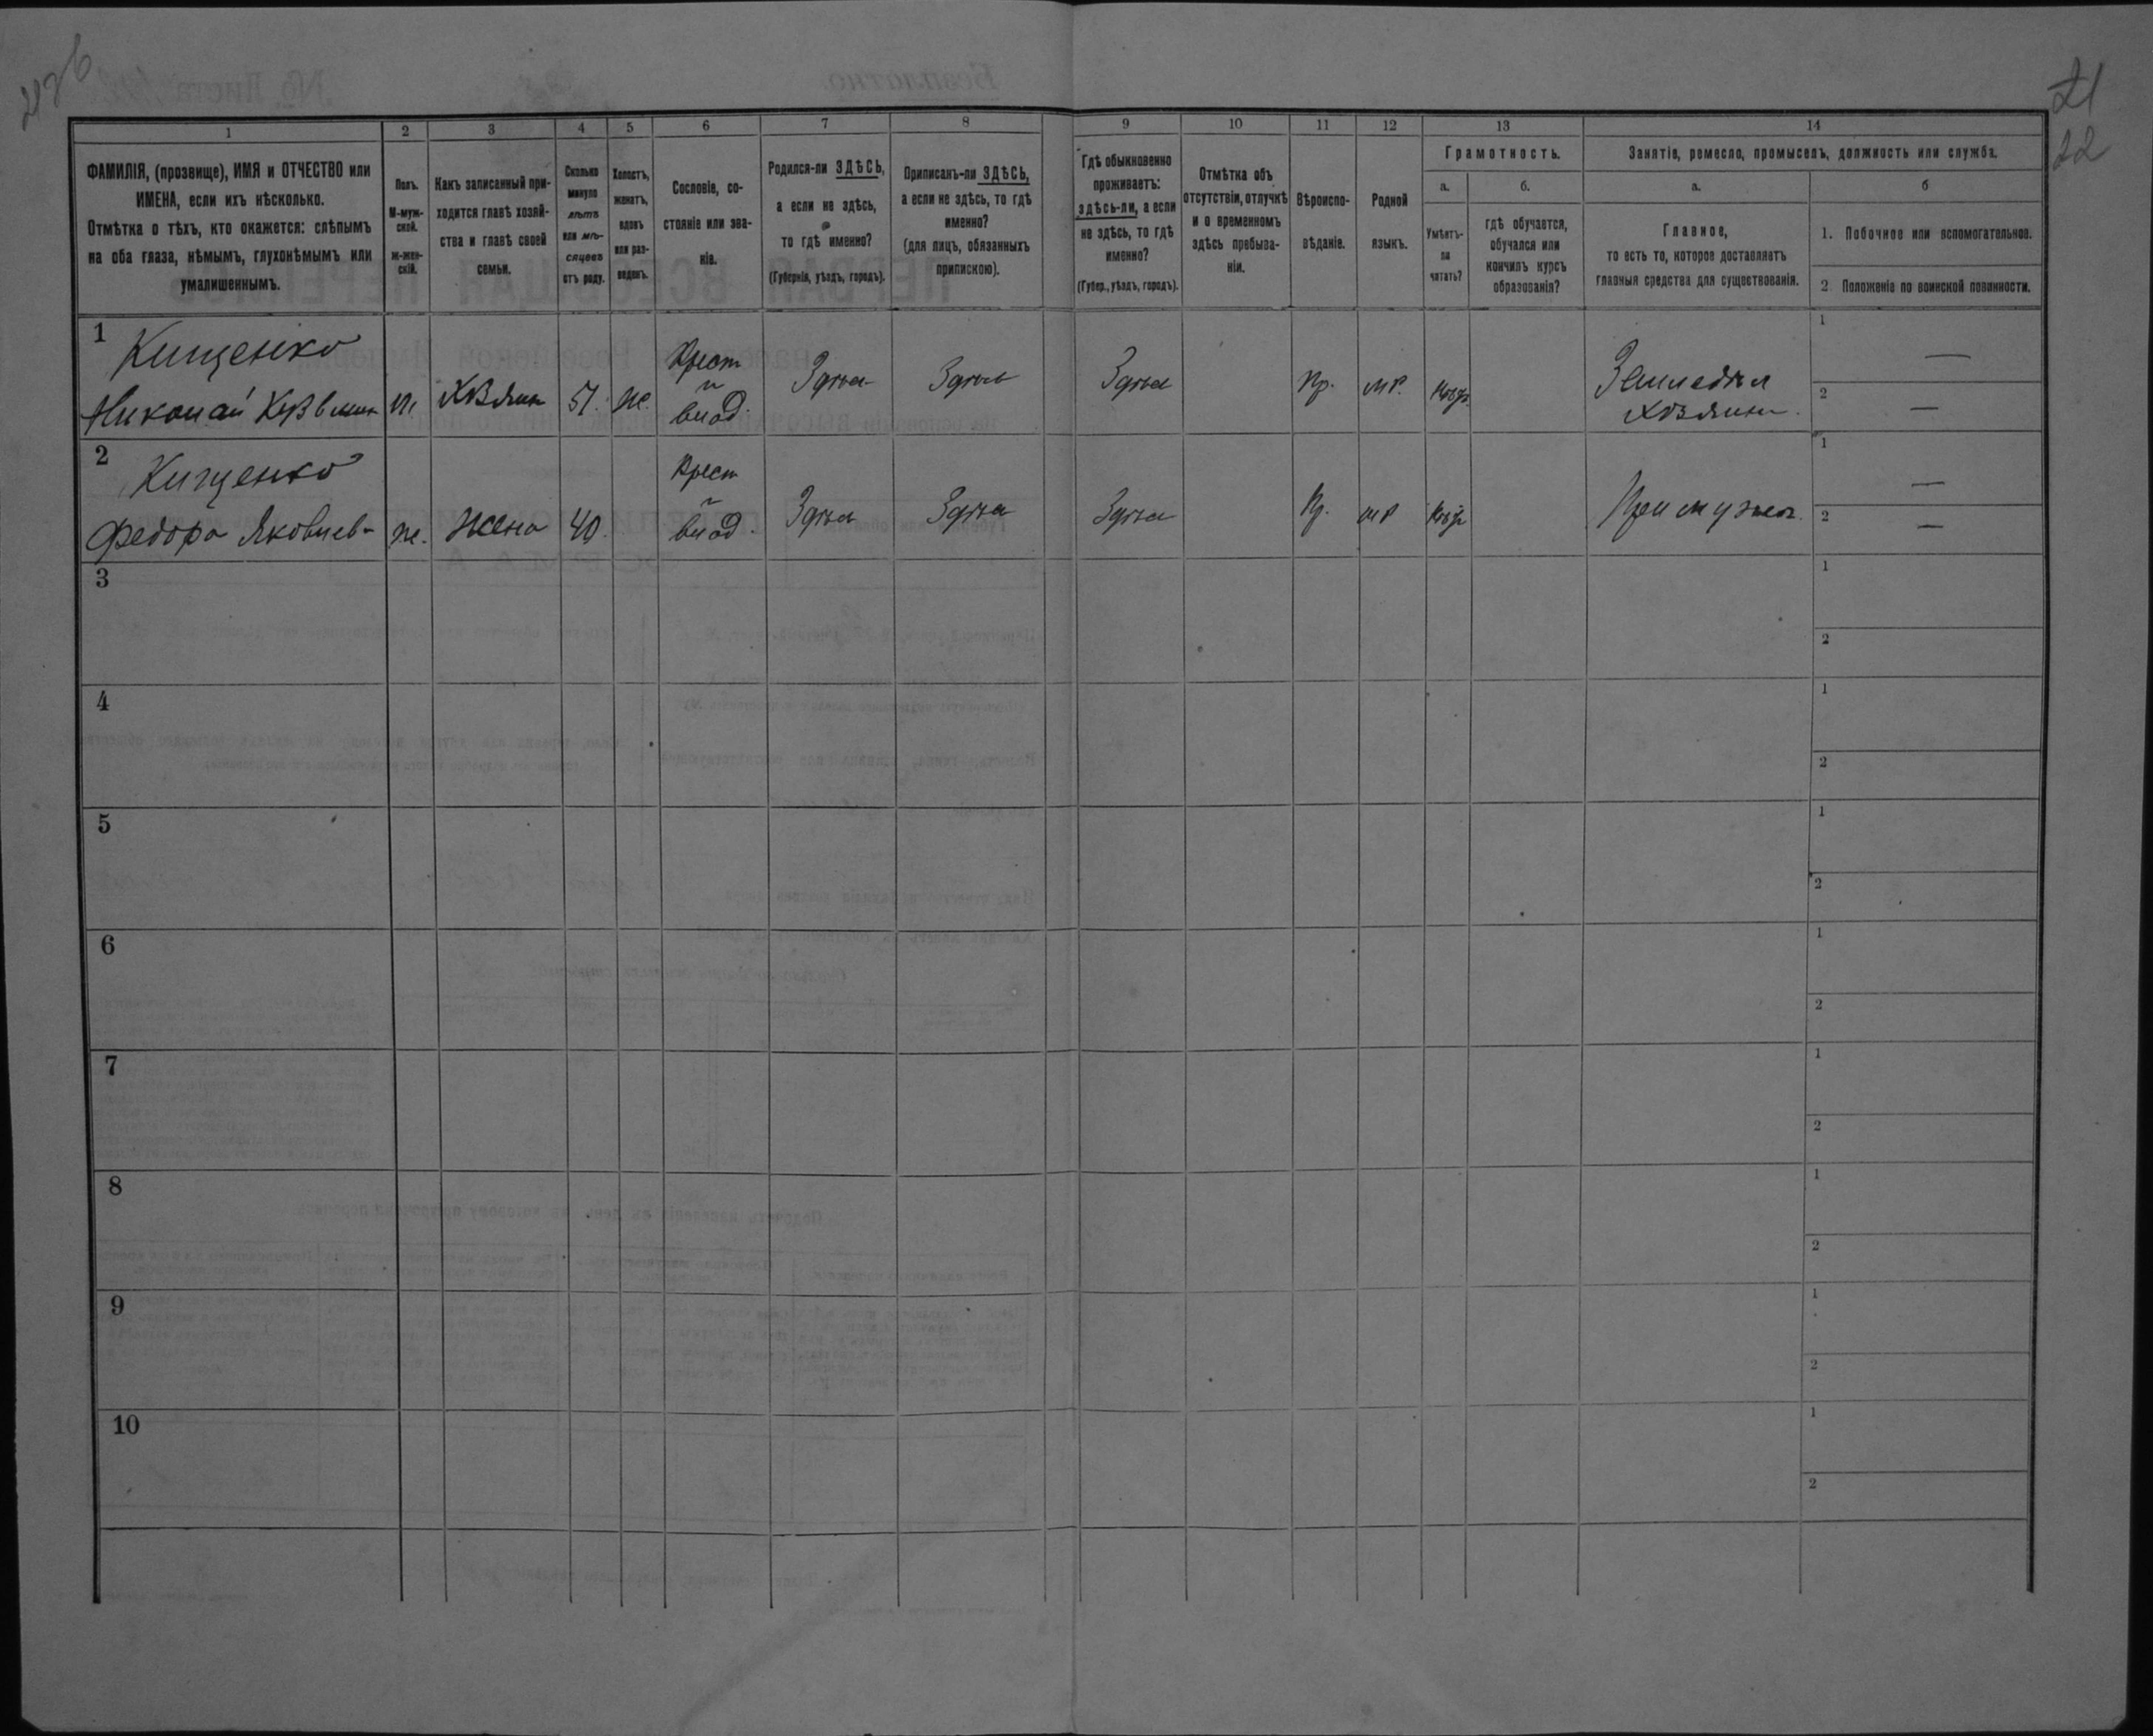 21
22
1 2 3 4 5 6 7 8 9 10 11 12 13 14
ФАМИЛІЯ, (прозвище), ИМЯ и ОТЧЕСТВО или
ИМЕНА, если ихъ нѣсколько.
Отмѣтка о тѣхъ, кто окажется: слѣпымъ
на оба глаза, нѣмымъ, глухонѣмымъ или
умалишеннымъ.
Полъ.
М-муж-
ской.
Ж-жен-
скій.
Какъ записанный при-
ходится главѣ хозяй-
ства и главѣ своей
семьи.
Сколько
минуло
лѣтъ
или мѣ-
сяцевъ
отъ роду.
Холостъ,
женатъ,
вдовъ
или раз-
веденъ.
Сословіе, со-
стояніе или зва-
ніе.
Родился-ли ЗДѢСЬ,
а если не здѣсь,
то гдѣ именно?
(Губернія, уѣздъ, городъ).
Приписанъ-ли ЗДѢСЬ,
а если не здѣсь, то гдѣ
именно?
(для лицъ, обязанныхъ
припискою).
Гдѣ обыкновенно
проживаетъ:
здѣсь-ли, а если
не здѣсь, то гдѣ
именно?
(Губер., уѣздъ, городъ).
Отмѣтка объ
отсутствіи, отлучкѣ
и о временномъ
здѣсь пребыва-
ніи.
Вѣроиспо-
вѣданіе.
Родной
языкъ.
Грамотность.
а.
Умѣетъ-
ли
читать?
б.
гдѣ обучается,
обучался или
кончилъ курсъ
образованія?
Занятіе, ремесло, промыселъ, должность или служба.
а.
Главное,
то есть то, которое доставляетъ
главныя средства для существованія.
б
1. Побочное или вспомогательное.
2 Положеніе по воинской повинности.
1
Кищенко
Николай Кузьмин
м
хозяин
51.
же.
Крест
и
влад.
Здѣсь
Здѣсь
Здѣсь
Пр.
мр.
Землед
Хозяин.
1 —
2 —
2
Кищенко
Федора Яковлев
же.
Жена
40.
Крест
и
влад.
Здѣсь
Здѣсь
Здѣсь
Пр.
мр
При муже.
1 —
2 —
3
1
2
4
1
2
5
1
2
6
1
2
7
1
2
8
1
2
9
1
2
10
1
2